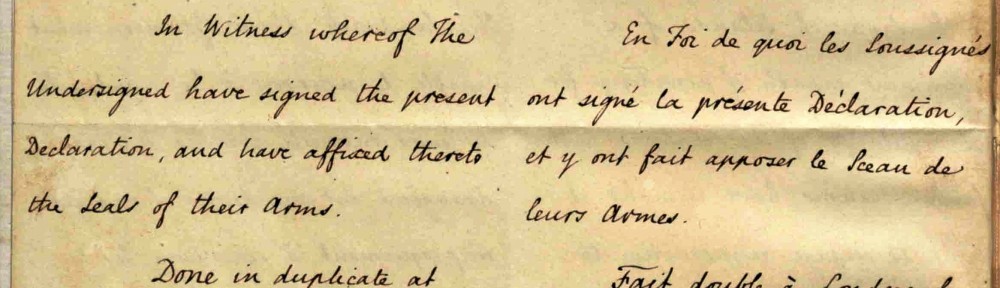 In Witness whereof The
Undersigned have signed the present
Declaration, and have affixed thereto
the Seals of their Arms.
Done in duplicate at
En Foi de quoi les Soussignés
ont signé la présente Déclaration,
et y ont fait apposer le Sceau de
leurs Armes.
Fait double à Londres